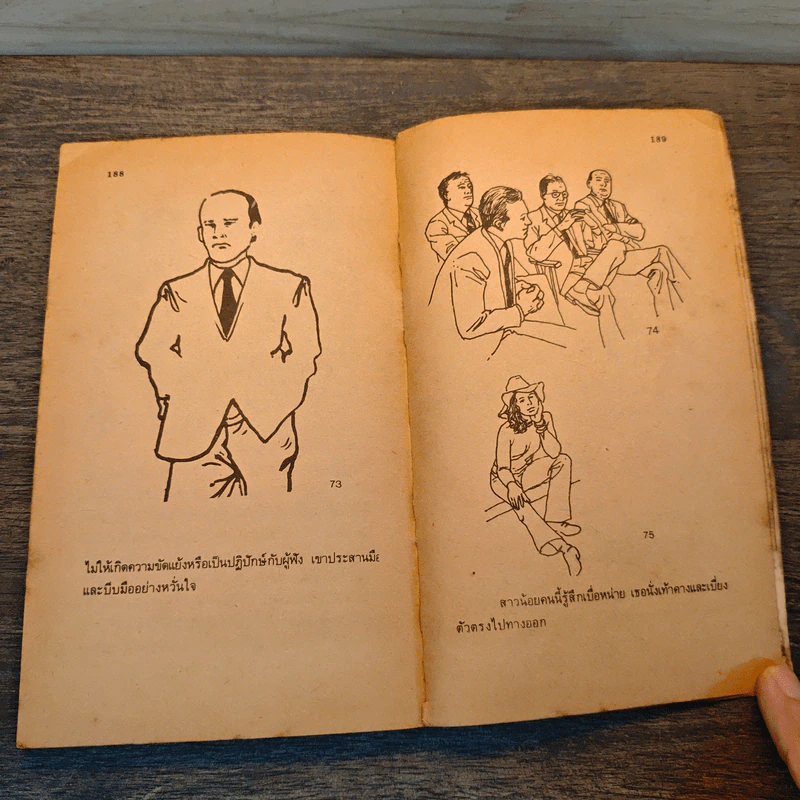 188
73
ไม่ให้เกิดความขัดแย้งหรือเป็นปฏิปักษ์กับผู้ฟัง เขาประสานมือ
และบีบมืออย่างหวั่นใจ
189
74
75
สาวน้อยคนนี้รู้สึกเบื่อหน่าย เธอนั่งเท้าคางและเบี่ยง
ตัวตรงไปทางออก